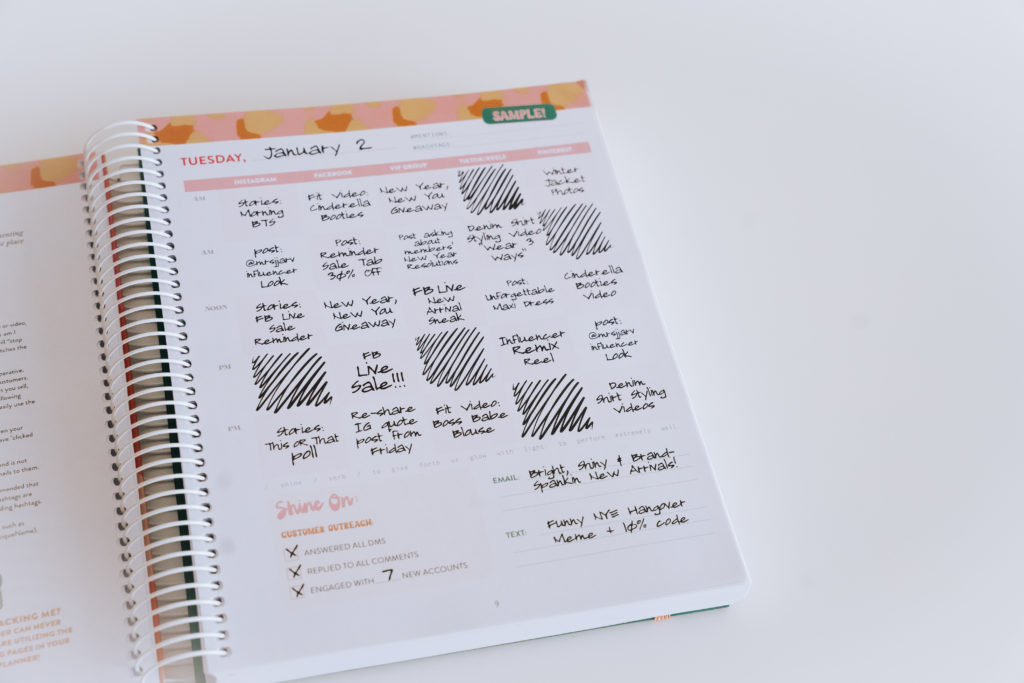 SAMPLE!
TUESDAY, January 2
#HASHTAGS
INSTAGRAM FACEBOOK VIP GROUP TIKTOK/REELS PINTEREST
AM
Stories:
Morning
BTS
Fit Video:
Cinderella
Booties
New Year,
New You
Giveaway
Winter
Jacket
Photos
AM
post:
@mrsjjarv
influencer
Look
Post:
Reminder
Sale Tab
30% Off
Post asking
about
members'
New Year
Resolutions
Denim Shirt
Styling Video
"Wear 3
Ways"
NOON
Stories:
FB Live
Sale
Reminder
New Year,
New You
Giveaway
FB Live
New
Arrival
Sneak
Post:
Unforgettable
Maxi Dress
Cinderella
Booties
Video
PM
FB
Live
Sale!!!
Influencer
Remix
Reel
post:
@mrsjjarv
influencer
Look
PM
Stories:
This or That
poll
Re-share
IG quote
post from
Friday
Fit Video:
Boss Babe
Blouse
Denim
Shirt Styling
Videos
/ shine / verb / to give forth or glow with light; to perform extremely well
Shine On:
CUSTOMER OUTREACH:
X ANSWERED ALL DMS
X REPLIED TO ALL COMMENTS
X ENGAGED WITH 7 NEW ACCOUNTS
EMAIL: Bright, Shiny & Brand-
Spankin New Arrivals!
TEXT: Funny NYE Hangover
Meme + 10% code
9